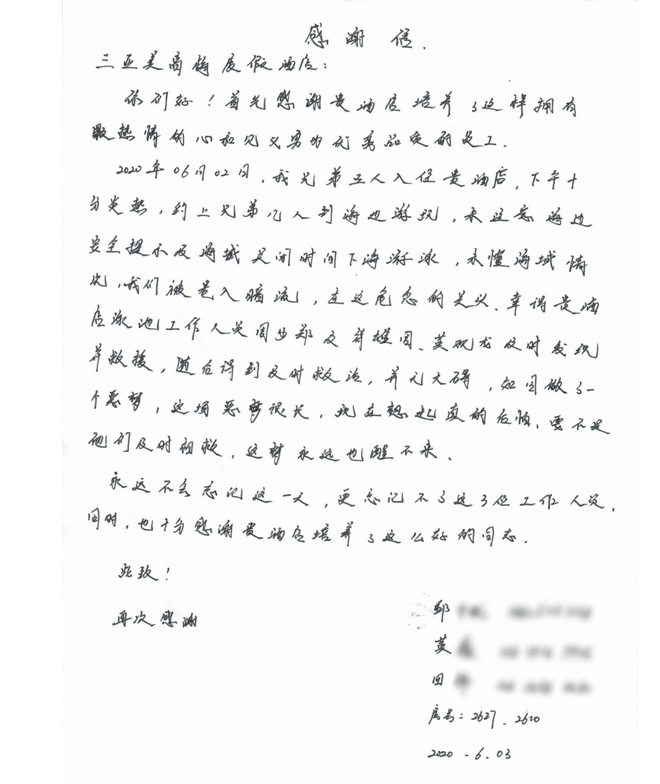 感谢信.
三亚美高梅度假酒店:
你们好!首先感谢贵酒店培养了这样拥有
热情的心和见义勇为优秀品质的员工.
2020年06月02日,我兄弟五人入住贵酒店,下午十
分炎热,约上兄弟几人到海边游玩,未注意海边
安全提示及海域关闭时间下海游泳,未懂海域情
况,我们被卷入暗流,在这危急的关头.幸得贵酒
店泳池工作人员周步郑及符雄国、英观龙及时发现
并救援,随后得到及时救治,并无大碍,如同做了一
个恶梦,这场恶梦很长,现在想起真的后怕,要不是
他们及时相救,这梦永远也醒不来.
永远不会忘记这一天,更忘记不了这3位工作人员.
同时,也十分感谢贵酒店培养了这么好的同志.
此致!
再次感谢
郑
英
田
房号:2627.2620
2020-6.03